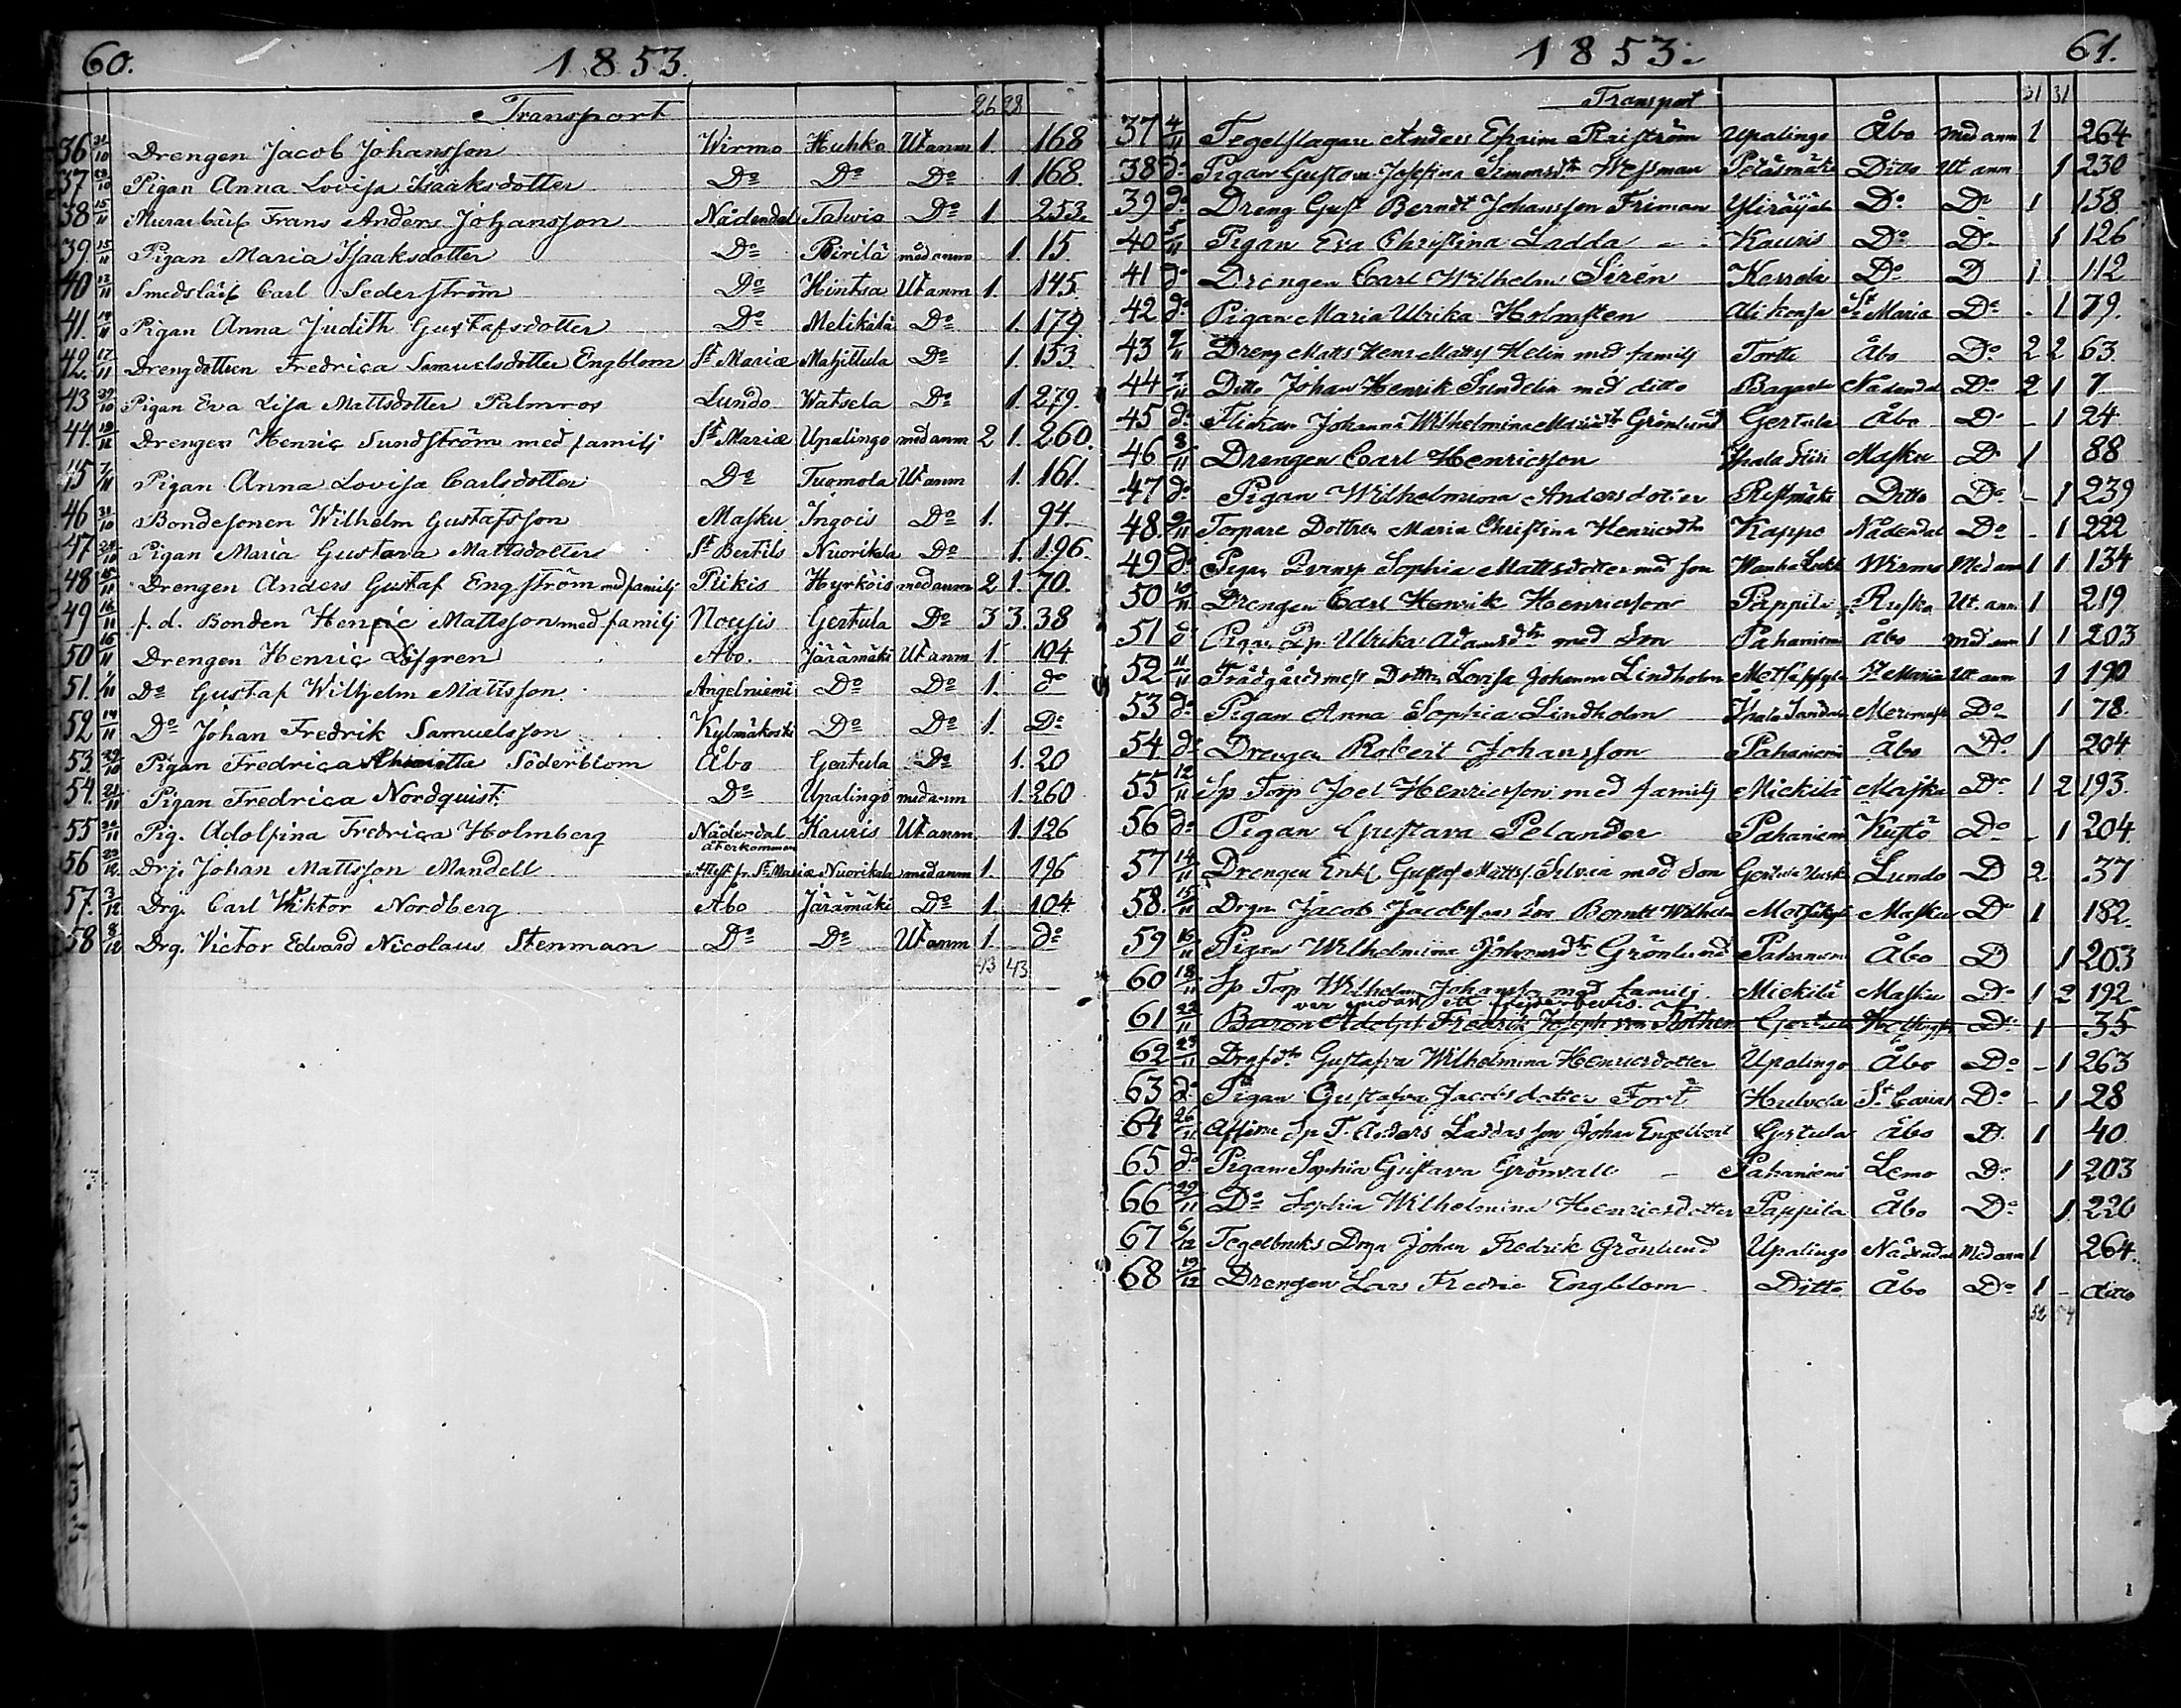 60. 1853.
Transport 26 28
36 31/10 Drengen Jacob Johansson Wirmo Huhko Ut anm 1. 168
37 29/10 Pigan Anna Lovisa Isaaksdotter Do Do Do 1. 168.
38 15/11 Murarlärl Frans Anders Johansson Nådendal Talwio Do 1. 253.
39. 15/11 Pigan Maria Isaaksdotter Do Pirilä med anm 1. 15.
40 12/11 Smedslärl Carl Sederström Do Hintsa Ut anm 1. 145.
41. 14/11 Pigan Anna Judith Gustafsdotter Do Melikälä Do 1. 179
42. 17/11 Drengdottren Fredrica Samuelsdotter Engblom St Mariæ Mahittula Do 1. 153.
43 Pigan Eva Lisa Mattsdotter Palmros Lundo Watsela Do 1. 279.
44. Drengen Henric Sundström med familj St Mariæ Upalingo med anm 2 1. 260.
45 7/11 Pigan Anna Lovisa Carlsdotter Do Tuomola Ut anm 1. 161.
46 31/10 Bondesonen Wilhelm Gustafsson Masku Ingois Do 1. 94.
47 Pigan Maria Gustava Mattsdotter St Bertils Nuorikala Do 1. 196.
48 15/11 Drengen Anders Gustaf Engström med familj Piikis Hyrköis med anm 2 1. 70.
49 16/11 f. d. Bonden Henric Mattsson med familj Nousis Gertula Do 3 3. 38
50 16/11 Drengen Henric Löfgren Åbo. Järämäki Ut anm 1. 104
51. 1/11 Do Gustaf Wilhelm Mattsson Angelniemi Do Do 1. do
52 14/11 Do Johan Fredrik Samuelsson Kylmäkoski Do Do 1. Do
53 29/10 Pigan Fredrica Söderblom Åbo Gertula Do 1. 20
54. 21/11 Pigan Fredrica Nordquist. Do Upalingo med anm 1. 260
55 Pig. Adolfina Fredrica Holmberg Nådendal Kauris Ut anm 1. 126
återkommen
56 Drg. Johan Mattsson Mandell Attest fr. St Mariæ Nuorikala med anm 1. 196
57. 3/12 Drg. Carl Wiktor Nordberg Åbo Järämäki Do 1. 104
58 8/12 Drg. Victor Edvard Nicolaus Stenman Do Do Ut anm 1. do
43 43
1853. 61.
Transport 31 31
37 4/11 Tegelslagare Anders Efraim Riström Upalingo Åbo med anm 1 264
38 do Pigan Gustava Josefina Simonsdtr Wessman Petäsmäki Ditto Ut anm 1 230
39 do Dreng Gust Berndt Johansson Friman Yliräjälä Do Do 1 158
40 5/11 Pigan Eva Christina Ladda Kauris Do Do 1 126
41 do Drengen Carl Wilhelm Sirén Kerrola Do D 1 112
42 do Pigan Maria Ulrika Holmsten Alikensa St Maria Do - 1 79.
43 7/11 Dreng Matts Henr Mattss Helin med familj Tortti Åbo Do 2 2 63
44 7/11 Ditto Johan Henrik Sundelin med ditto Bagarla Nådendal Do 2 1 7
45 do Flickan Johanna Wilhelmina Mariædtr Grönlund Gertula Åbo Do - 1 24
46 8/11 Drengen Carl Henricsson Masku Do 1 88
47 do Pigan Wilhelmina Andersdotter Ristmäki Ditto Do - 1 239
48. 9/11 Torpare Dottren Maria Christina Henricsdtr Kappo Nådendal Do - 1 222
49 do Pigan Sophia Mattsdotter med son Wirmo Med anm 1 1 134
50 10/11 Drengen Carl Henrik Henricsson Pappila Rusko Ut. anm 1 219
51 do Pigan Ulrika Adamsdtr med son Pahaniemi Åbo med anm 1 1 203
52 11/11 Trädgårdsmest Dottren Lovisa Johanna Lindholm St Mariæ Ut anm 1 190
53 do Pigan Anna Sophia Lindholm Merimask Do 1 78.
54 do Drengen Robert Johansson Pahaniemi Åbo Do 1 204
55 12/11 Sp Torp Joel Henricsson med familj Mickilä Masku Do 1 2 193.
56 do Pigan Gustava Pelander Pahaniemi Kustö Do - 1 204
57 14/11 Drengen Enkl Gustaf Mattss. Silvin med Son Gertula Lundo D 2 37
58. 15/11 Drgn Jacob Jacobssons Son Berndt Wilhelm Masku Do 1 182.
59 16/11 Pigan Wilhelmina Johansdtr Grönlund Pahaniemi Åbo D 1 203
60 18/11 Sp Torp Wilhelm Johansson med familj Mickilä Masku Do 1 2 192
var endast ett
61 22/11 Baron Adolph Fredrik Joseph von Kothen Gertula Do 1 35
62 23/11 Drgsdtr Gustafva Wilhelmina Henricsdotter Upalingo Åbo Do - 1 263
63 do Pigan Gustafva Jacobsdotter Fort Hulvela St Carins Do - 1 28
64 26/11 Sp T. Anders Laddas son Johan Engelbert Gertula Åbo D. 1 40
65 do Pigan Sophia Gustava Grönvall Pahaniemi Lemo Do 1 203
66 29/11 Do Sophia Wilhelmina Henricsdotter Pappila Åbo Do 1 220
67 6/12 Tegelbruks Drgn Johan Fredrik Grönlund Upalingo Nådendal Med anm 1 264.
68 19/12 Drengen Lars Fredric Engblom Ditto Åbo Do 1 - ditto
52 54